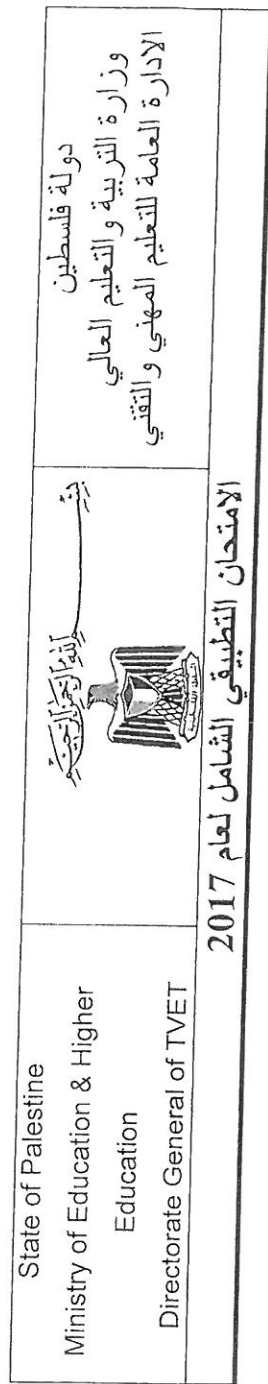 State of Palestine
Ministry of Education & Higher
Education
Directorate General of TVET
بسم الله الرحمن الرحيم
دولة فلسطين
وزارة التربية والتعليم العالي
الادارة العامة للتعليم المهني والتقني
الامتحان التطبيقي الشامل لعام 2017